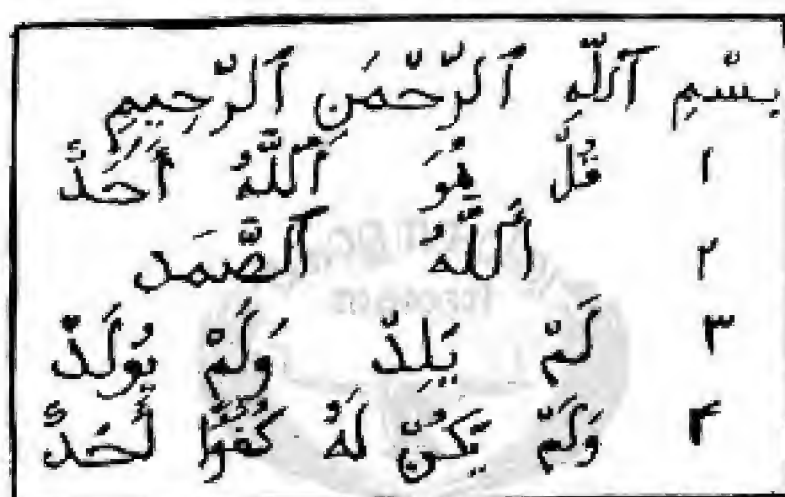 بِسْمِ ٱللّٰهِ ٱلرَّحْمَنِ ٱلرَّحِيمِ
١ قُلْ هُوَ ٱللَّهُ أَحَدٌ
٢ اَللَّهُ ٱلصَّمَد
٣ لَمْ يَلِدْ وَلَمْ يُولَدْ
۴ وَلَمْ يَكُنْ لَهُ كُفُوًا أَحَدٌ